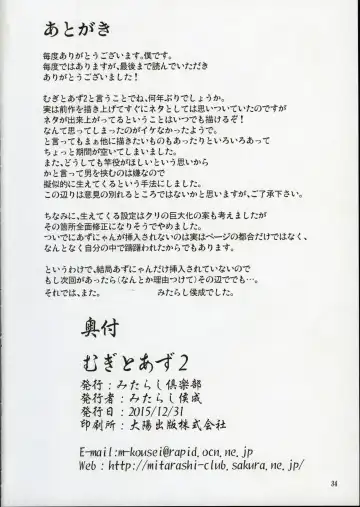 あとがき
毎度ありがとうございます。僕です。
毎度ではありますが、最後まで読んでいただき
ありがとうございました！
むぎとあず2と言うことでね、何年ぶりでしょうか。
実は前作を描き上げてすぐにネタとしては思いついていたのですが
ネタが出来上がってるということはいつでも描けるぞ！
なんて思ってしまったのがイケなかったようで。
と言ってもまぁ他に描きたいものもあったりといろいろあって
ちょっと期間が空いてしまいました。
また、どうしても竿役がほしいという思いから
かと言って男を挟むのは嫌なので
擬似的に生えてくるという手法にしました。
この辺りは意見の別れるところではないかと思いますが、ご了承下さい。
ちなみに、生えてくる設定はクリの巨大化の案も考えましたが
その箇所全面修正になりそうでやめました。
ついでにあずにゃんが挿入されないのは実はページの都合だけではなく、
なんとなく自分の中で躊躇われたからでもあります。
というわけで、結局あずにゃんだけ挿入されていないので
もし次回があったら(なんとか理由つけて)その辺ででも…。
それでは、また。 みたらし侯成でした。
奥付
むぎとあず2
発行：みたらし倶楽部
発行者：みたらし侯成
発行日：2015/12/31
印刷所：大陽出版株式会社
E-mail:m-kousei@rapid.ocn.ne.jp
Web：http://mitarashi-club.sakura.ne.jp/
34